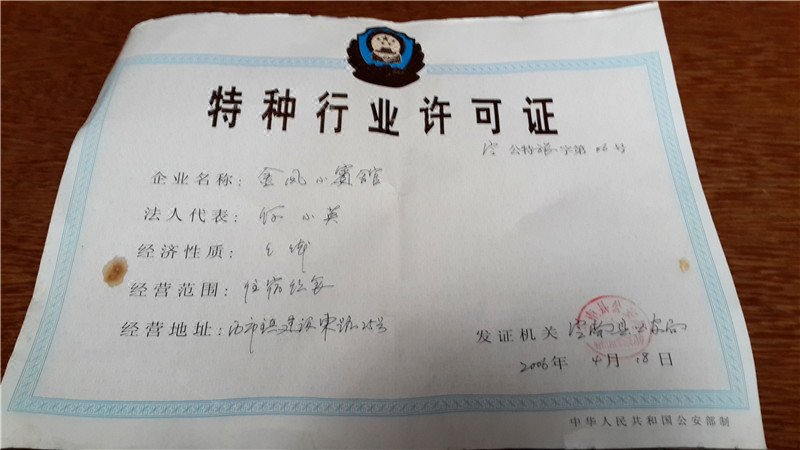 特种行业许可证
公特旅字第 06 号
企业名称：金凤小宾馆
法人代表：何小英
经济性质：个体
经营范围：住宿
经营地址：西市镇建设东路25号
发证机关 县公安局
2006年 4月 18日
中华人民共和国公安部制